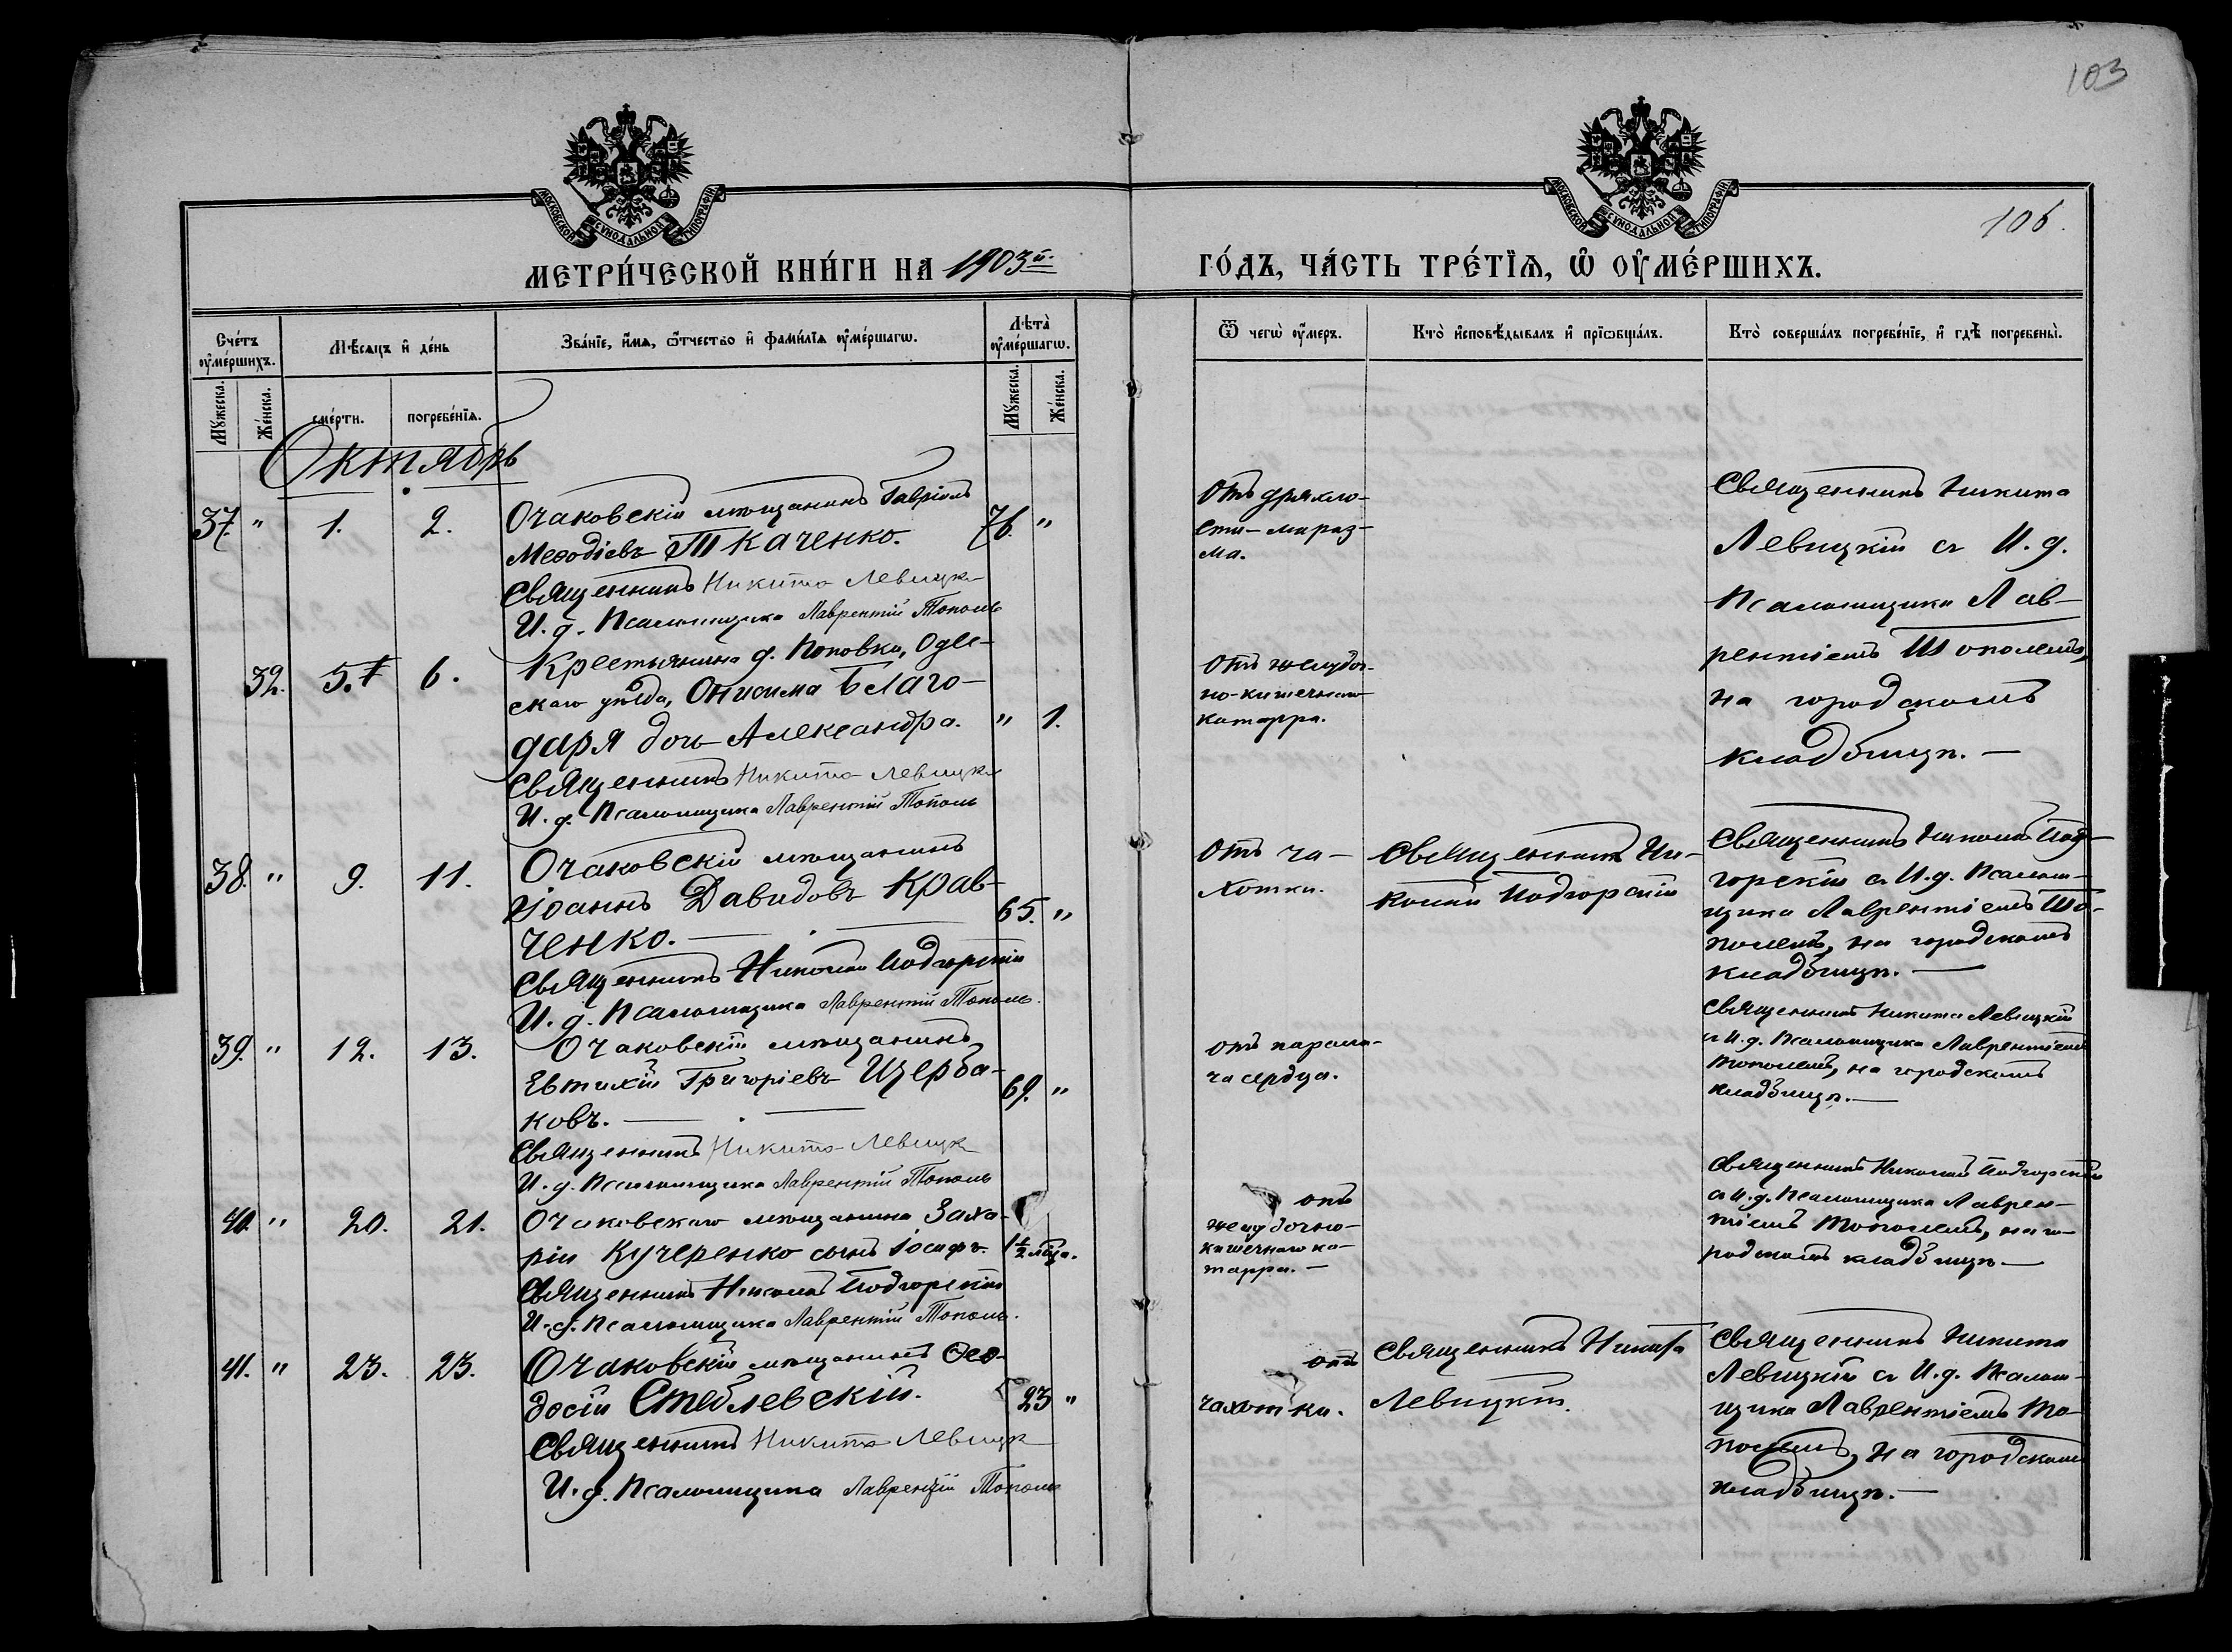 103
МОСКОВСКОЙ СУНОДАЛЬНОЙ ТИПОГРАФІИ
МОСКОВСКОЙ СУНОДАЛЬНОЙ ТИПОГРАФІИ
106.
МЕТРИ́ЧЕСКОЙ КНИ́ГИ НА 1903й.
ГО́ДЪ, ЧА́СТЬ ТРЕ́ТЇѦ, Ѡ҆ ОУ҆МЕ́РШИХЪ.
Сче́тъ оу҆ме́ршихъ.
Мѣ́сѧцъ и҆ де́нь
Зва́нїе, и҆́мѧ, ѻ҆́тчество и҆ фами́лїѧ оу҆ме́ршагѡ.
Лѣ́та оу҆ме́ршагѡ.
Ѿ чегѡ̀ оу҆́меръ.
Кто̀ и҆сповѣ́дывалъ и҆ прїѡбща́лъ.
Кто̀ соверша́лъ погребе́нїе, и҆ гдѣ̀ погребены̀.
Мꙋ́жеска.
Же́нска.
сме́рти.
погребе́нїѧ.
Мꙋ́жеска.
Же́нска.
Октябрь
37. " 1. 2.
Очаковскій мѣщанинъ Гавріилъ
Меѳодіевъ Ткаченко.
76. "
Священникъ Никита Левицк
И. д. Псаломщика Лаврентій Тополь
Отъ дряхло-
сти-мараз-
ма.
Священникъ Никита
Левицкій съ И. д.
Псаломщика Лав-
рентіемъ Тополемъ,
на городскомъ
кладбищѣ.—
32. 5. 6.
Крестьянина д. Поповки, Одес-
скаго уѣзда, Онисима Благо-
даря дочь Александра.
" 1.
Священникъ Никита Левицк
И. д. Псаломщика Лаврентій Тополь
Отъ желудоч-
но-кишечнаго
катарра.
38. " 9. 11.
Очаковскій мѣщанинъ
Іоаннъ Давидовъ Крав-
ченко.—
65. "
Священникъ Николай Подгорскій
И. д. Псаломщика Лаврентій Тополь.
Отъ ча-
хотки.
Священникъ Ни-
колай Подгорскій
Священникъ Николай Под-
горскій съ И. д. Псалом-
щика Лаврентіемъ То-
полемъ, на городскомъ
кладбищѣ.—
39. " 12. 13.
Очаковскій мѣщанинъ
Евтихій Григоріевъ Щерба-
ковъ.—
69. "
Священникъ Никита Левицк
И. д. Псаломщика Лаврентій Тополь
отъ парали-
ча сердца.
Священникъ Никита Левицкій
съ И. д. Псаломщика Лаврентіемъ
Тополемъ, на городскомъ
кладбищѣ.—
40. " 20. 21.
Очаковскаго мѣщанина Заха-
рія Кучеренко сынъ Іосифъ.
1½ мѣца.
Священникъ Николай Подгорскій
И. д. Псаломщика Лаврентій Тополь.
отъ
желудочно-
кишечнаго ка-
тарра.—
Священникъ Николай Подгорскій
съ И. д. Псаломщика Лаврен-
тіемъ Тополемъ, на го-
родскомъ кладбищѣ—
41. " 23. 23.
Очаковскій мѣщанинъ Ѳео-
досій Стеблевскій.
23 "
Священникъ Никита Левицк
И. д. Псаломщика Лаврентій Тополь
отъ
чахотки.
Священникъ Никита
Левицкій.
Священникъ Никита
Левицкій съ И. д. Псалом-
щика Лаврентіемъ То-
полемъ, на городскомъ
кладбищѣ.—